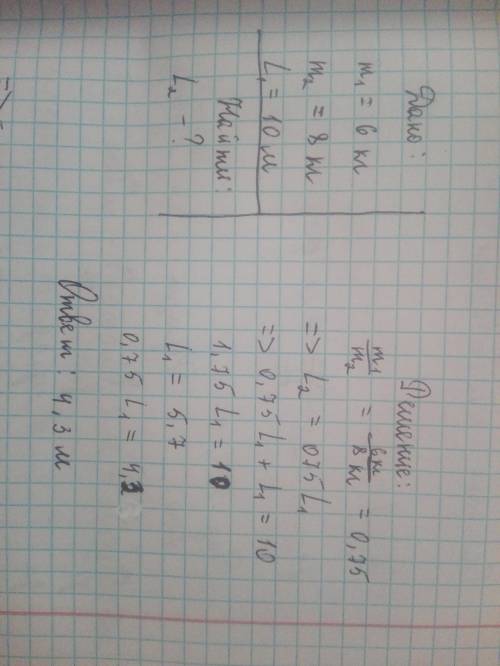 Дано:
m₁ = 6 кг
m₂ = 8 кг
L₁ = 10 м
Найти:
L₂ - ?
Решение:
m₁/m₂ = 6 кг/8 кг = 0,75
=> L₂ = 075 L₁
=> 0,75 L₁ + L₁ = 10
1,75 L₁ = 10
L₁ = 5,7
0,75 L₁ = 4,3
Ответ: 4,3 м